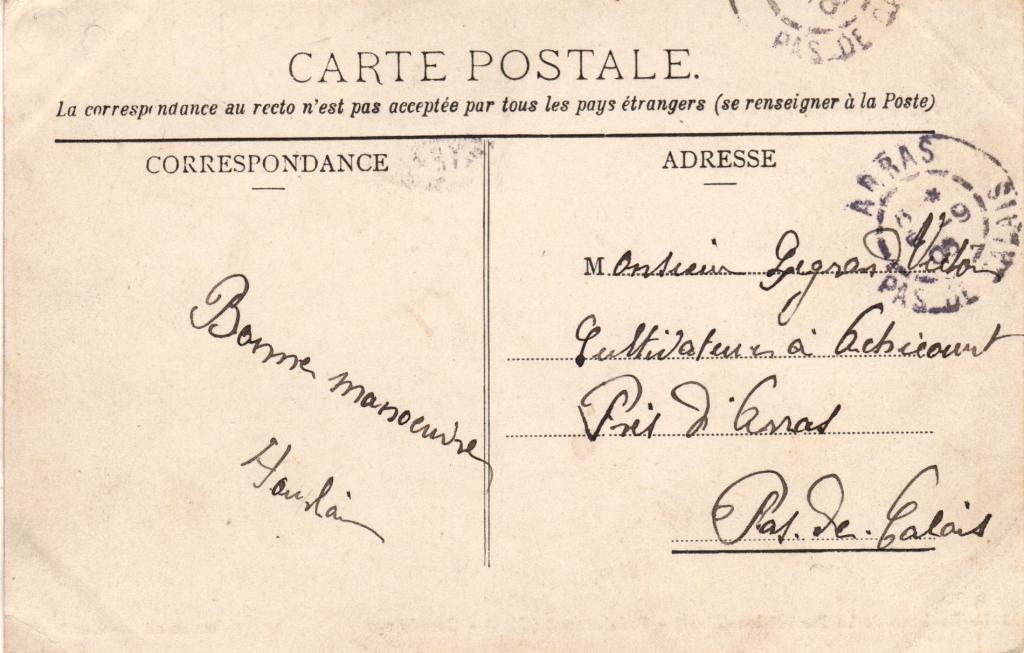 CARTE POSTALE.
La correspondance au recto n'est pas acceptée par tous les pays étrangers (se renseigner à la Poste)
CORRESPONDANCE
Bonne manoeuvre
ADRESSE
ARRAS
PAS-DE-CALAIS
PAS-DE
Monsieur Legrand Victor
Cultivateur à Achicourt
Près d'Arras
Pas-de-Calais